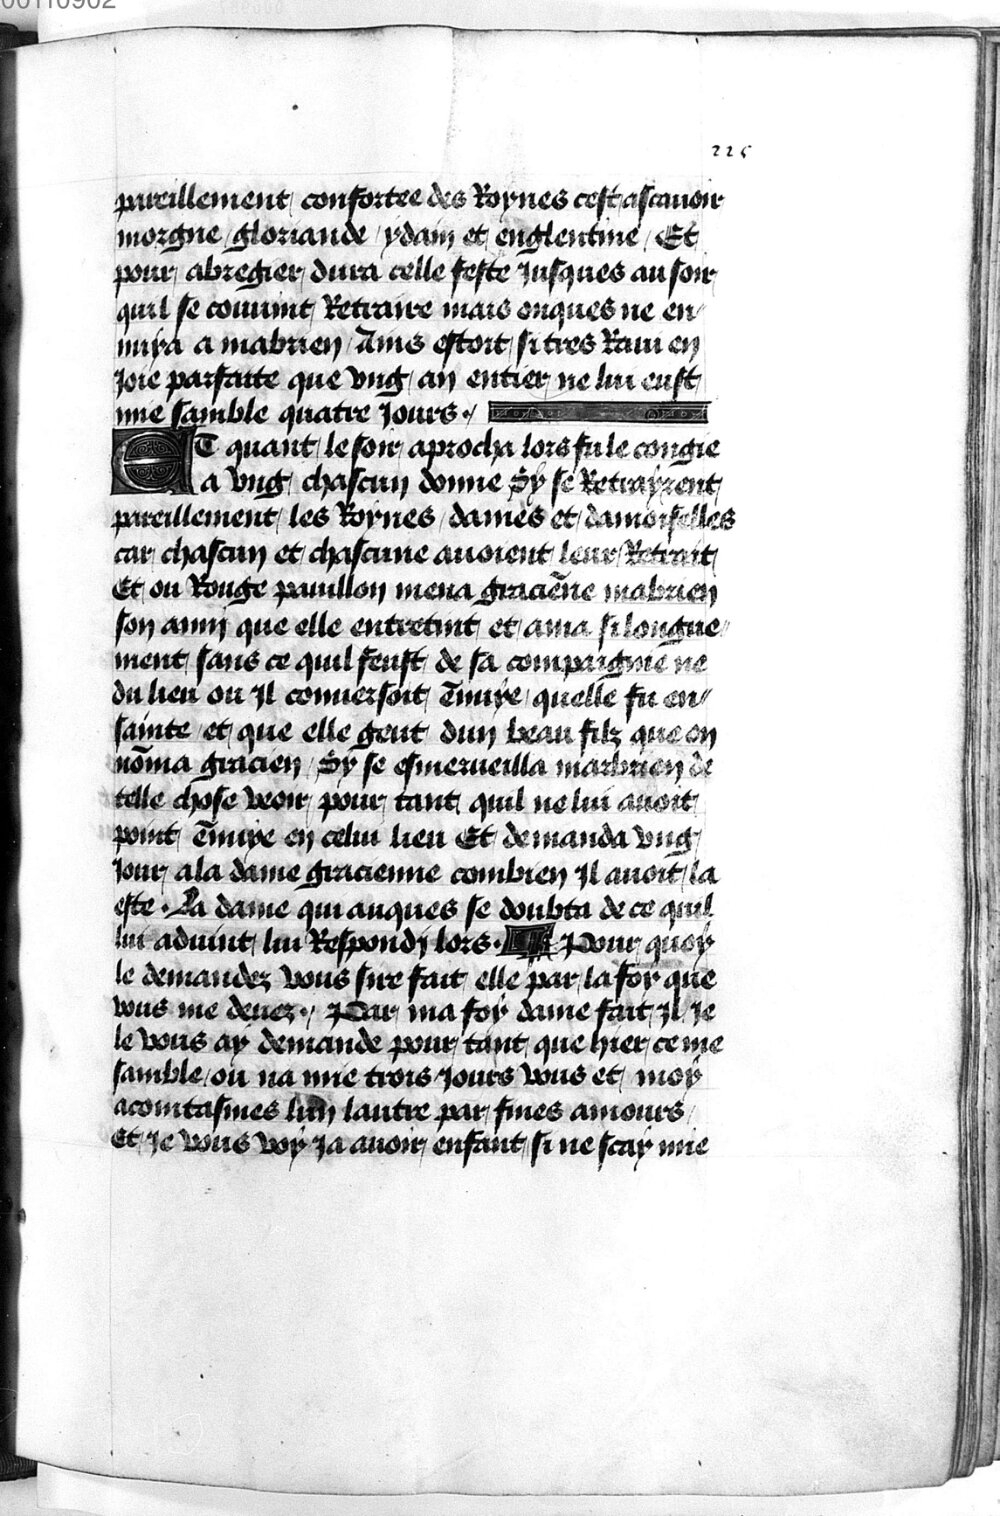 00110902
225
pareillement confortee des Roynes cest ascauoir
morgne / gloriande / ydain et englentine / Et
pour abregier dura celle feste Jusques au soir
quil se conuint Retraire mais onques ne en-
nuya a mabrien / Ains estoit si tres Raui en
Joie parfaitte que vng an entier ne lui eust
mie samble quatre Jours ·/
ET quant le soir aprocha lors fu le congie
a vng chascun donne Sy se Retrayrent
pareillement les Roynes / dames et damoiselles
car chascun et chascune auoient leur Retrait
Et ou Rouge pauillon mena graciēne mabrien
son amy que elle entretint et ama si longue-
ment sans ce quil feust de sa compaignie ne
du lieu ou Il conuersoit ēnuye / quelle fu en-
sainte et que elle geut dun beau filz que on
nōma gracien / Sy se esmerueilla mabrien de
telle chose veoir pour tant quil ne lui auoit
point ēnuye en celui lieu Et demanda vng
Jour a la dame gracienne combien Il auoit la
este · La dame qui auques se doubta de ce quil
lui aduint lui Respondy lors · Pour quoy
le demandez vous sire fait elle par la foy que
vous me deuez ·/ Par ma foy dame fait Il Je
le vous ay demande pour tant que hier ce me
samble / ou na mie trois Jours vous et moy
acointasmes lun lautre par fines amours /
Et Je vous voy Ja auoir enfant si ne scay mie